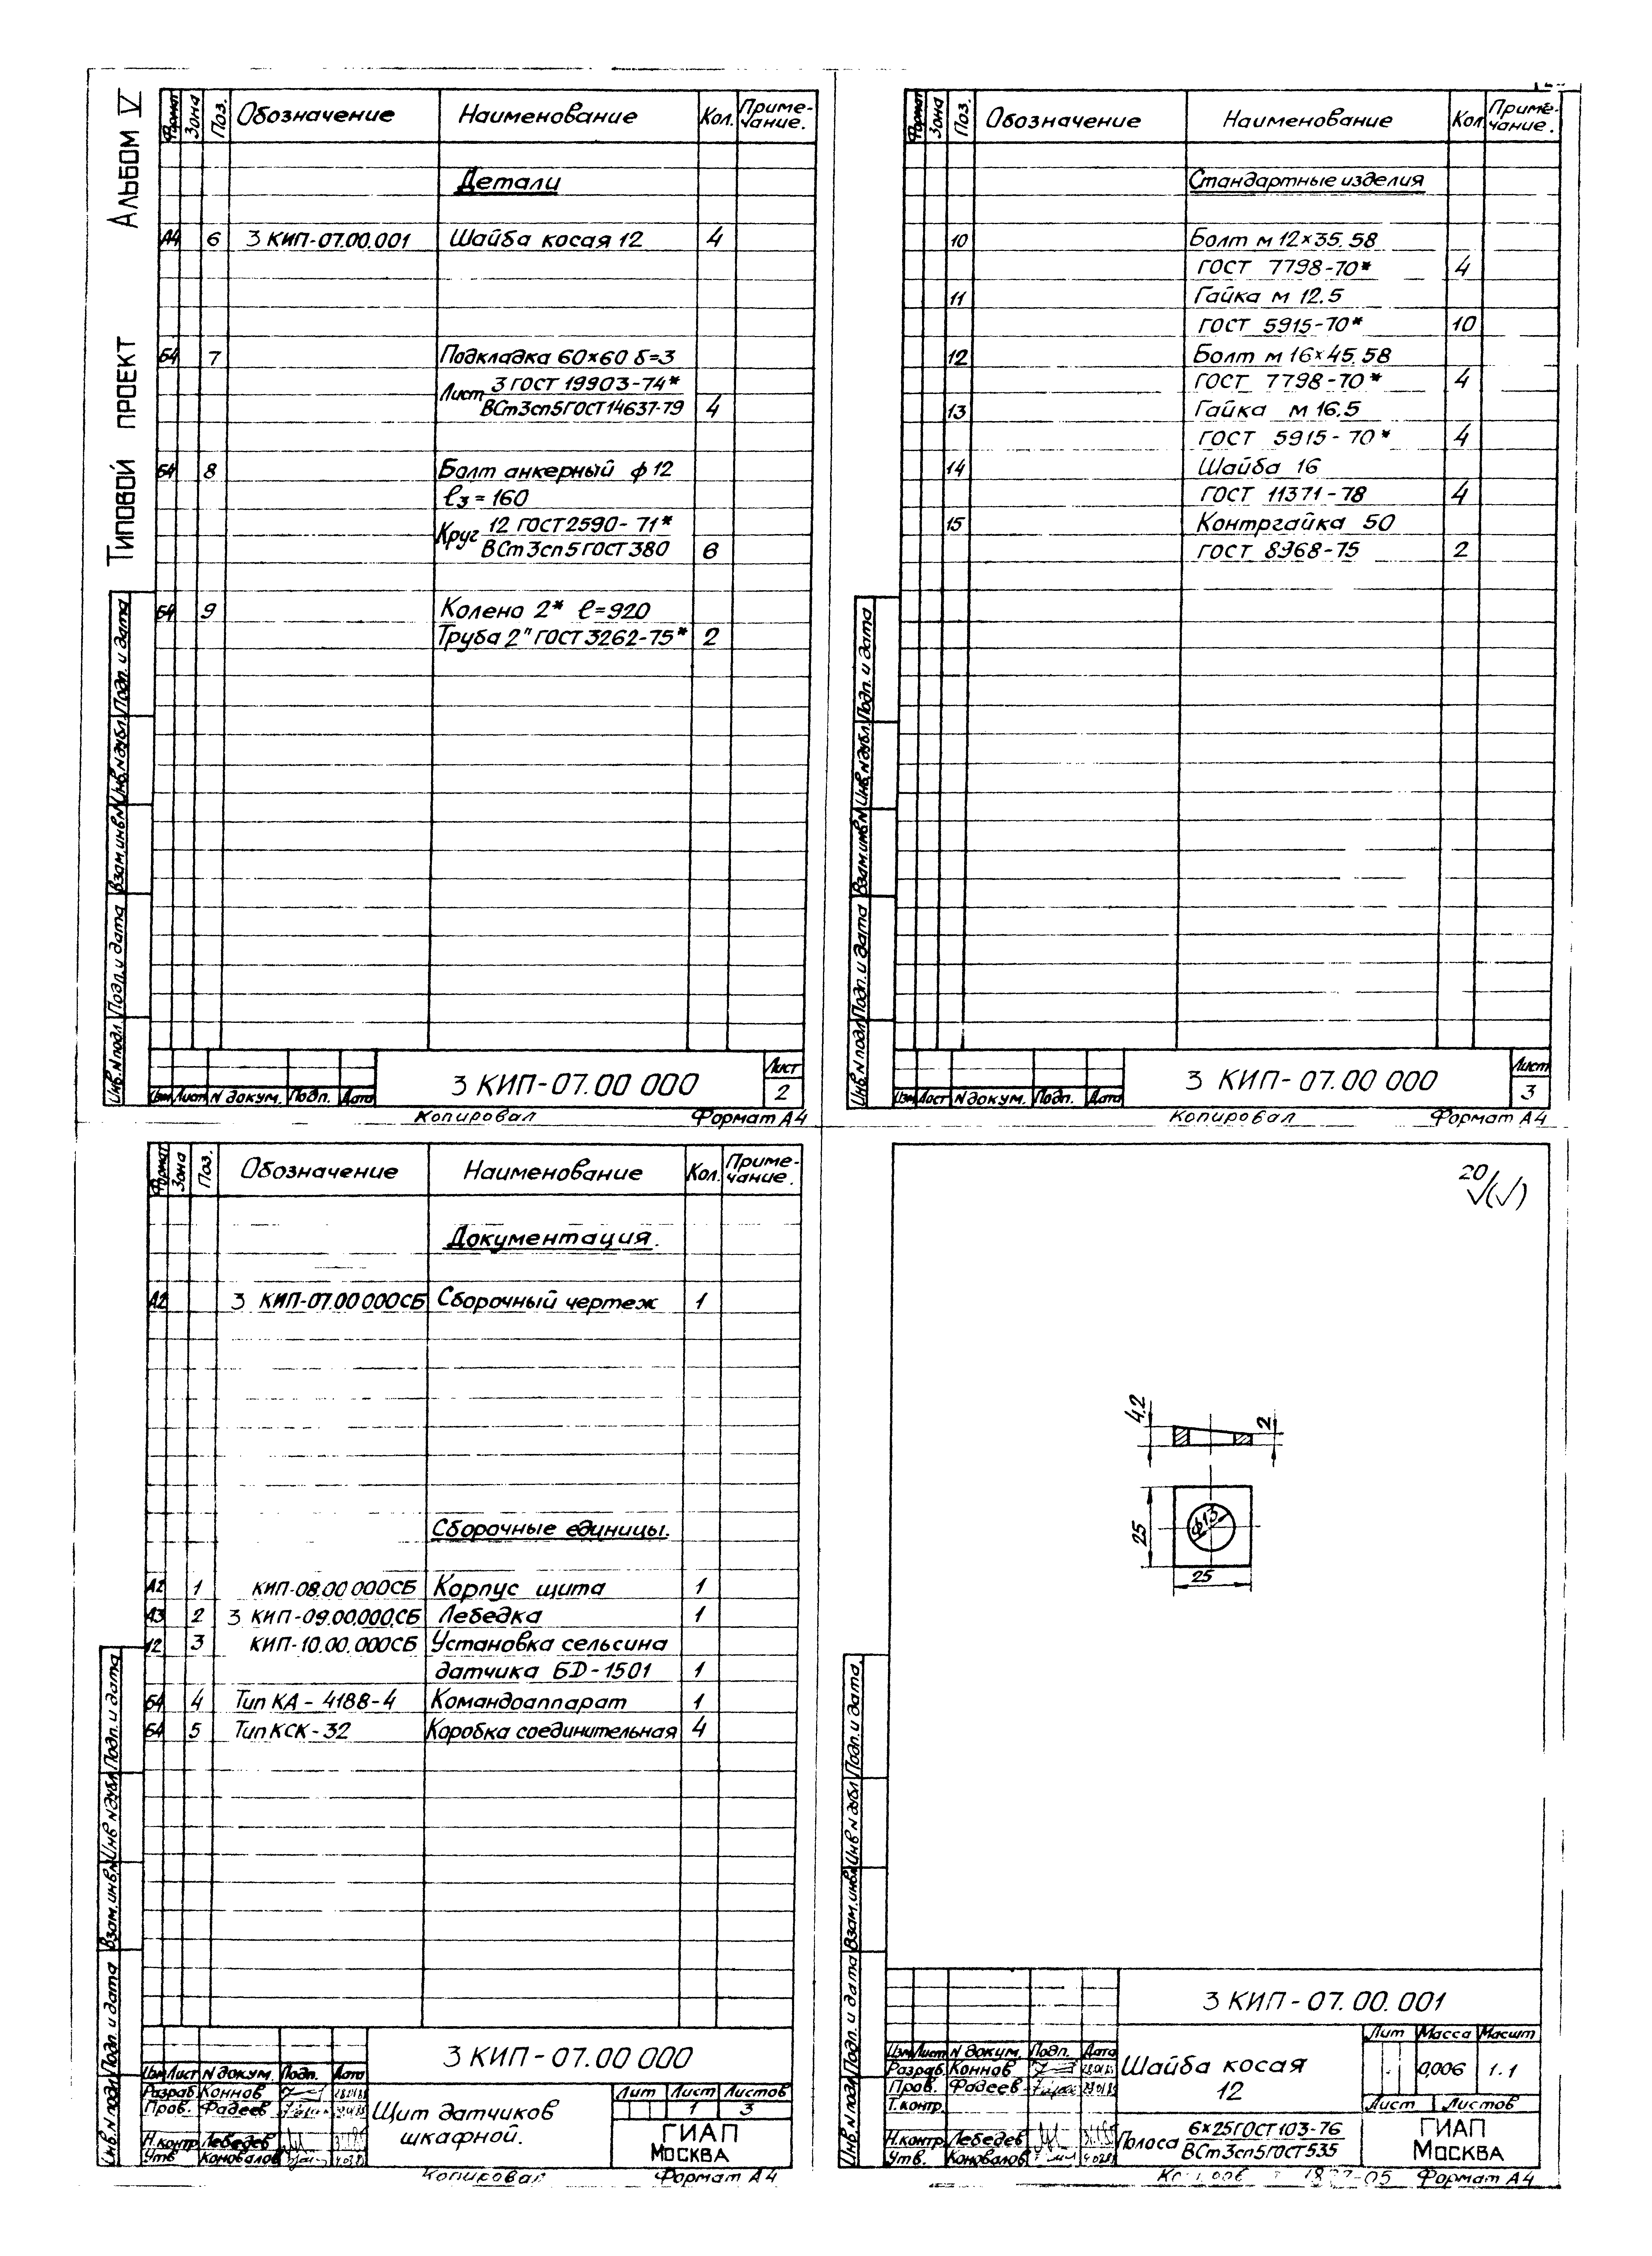 Альбом V
Типовой проект
Формат Зона Поз. Обозначение Наименование Кол. Приме-чание.
Детали
А4 6 3 КИП-07.00.001 Шайба косая 12 4
Б4 7 Подкладка 60×60 δ=3
Лист 3 ГОСТ 19903-74*
ВСт3сп5 ГОСТ 14637-79 4
Б4 8 Болт анкерный ф 12
ℓз = 160
Круг 12 ГОСТ 2590-71*
ВСт 3сп 5 ГОСТ 380 6
Б4 9 Колено 2* ℓ=920
Труба 2" ГОСТ 3262-75* 2
Инв. N подл. Подп. и дата Взам. инв. N Инв. N дубл. Подп. и дата
Изм Лист N докум. Подп. Дата
3 КИП-07.00 000
Лист
2
Копировал Формат А4
Формат Зона Поз. Обозначение Наименование Кол. Приме-чание.
Стандартные изделия
10 Болт м 12×35.58
ГОСТ 7798-70* 4
11 Гайка м 12.5
ГОСТ 5915-70* 10
12 Болт м 16×45.58
ГОСТ 7798-70* 4
13 Гайка м 16.5
ГОСТ 5915-70* 4
14 Шайба 16
ГОСТ 11371-78 4
15 Контргайка 50
ГОСТ 8968-75 2
Инв. N подл Подп. и дата Взам. инв. N Инв. N дубл. Подп. и дата
Изм Лист N докум. Подп. Дата
3 КИП-07.00 000
Лист
3
Копировал Формат А4
Формат Зона Поз. Обозначение Наименование Кол. Приме-чание.
Документация.
А2 3 КИП-07.00 000СБ Сборочный чертеж 1
Сборочные единицы.
А2 1 КИП-08.00 000СБ Корпус щита 1
А3 2 3 КИП-09.00.000.СБ Лебедка 1
12 3 КИП-10.00.000СБ Установка сельсина
датчика БД-1501 1
Б4 4 Тип КА-4188-4 Командоаппарат 1
Б4 5 Тип КСК-32 Коробка соединительная 4
Инв. N подл Подп. и дата Взам. инв. N Инв N дубл Подп. и дата
3 КИП-07.00 000
Изм Лист N докум. Подп. Дата
Разраб. Коннов
Пров. Фадеев
Н.контр. Лебедев
Утв Коновалов
Щит датчиков
шкафной.
Лит Лист Листов
1 3
ГИАП
Москва
Копировал Формат А4
20
4.2
2
25
ф13
25
Инв. N подл Подп. и дата Взам. инв. N Инв N дубл Подп. и дата.
3 КИП-07.00.001
Изм Лист N докум. Подп. Дата
Разраб. Коннов
Пров. Фадеев
Т.контр.
Н.контр. Лебедев
Утв. Коновалов
Шайба косая
12
Лит Масса Масшт
0,006 1.1
Лист Листов
Полоса 6×25 ГОСТ 103-76
ВСт3сп5 ГОСТ 535
ГИАП
Москва
Формат А4